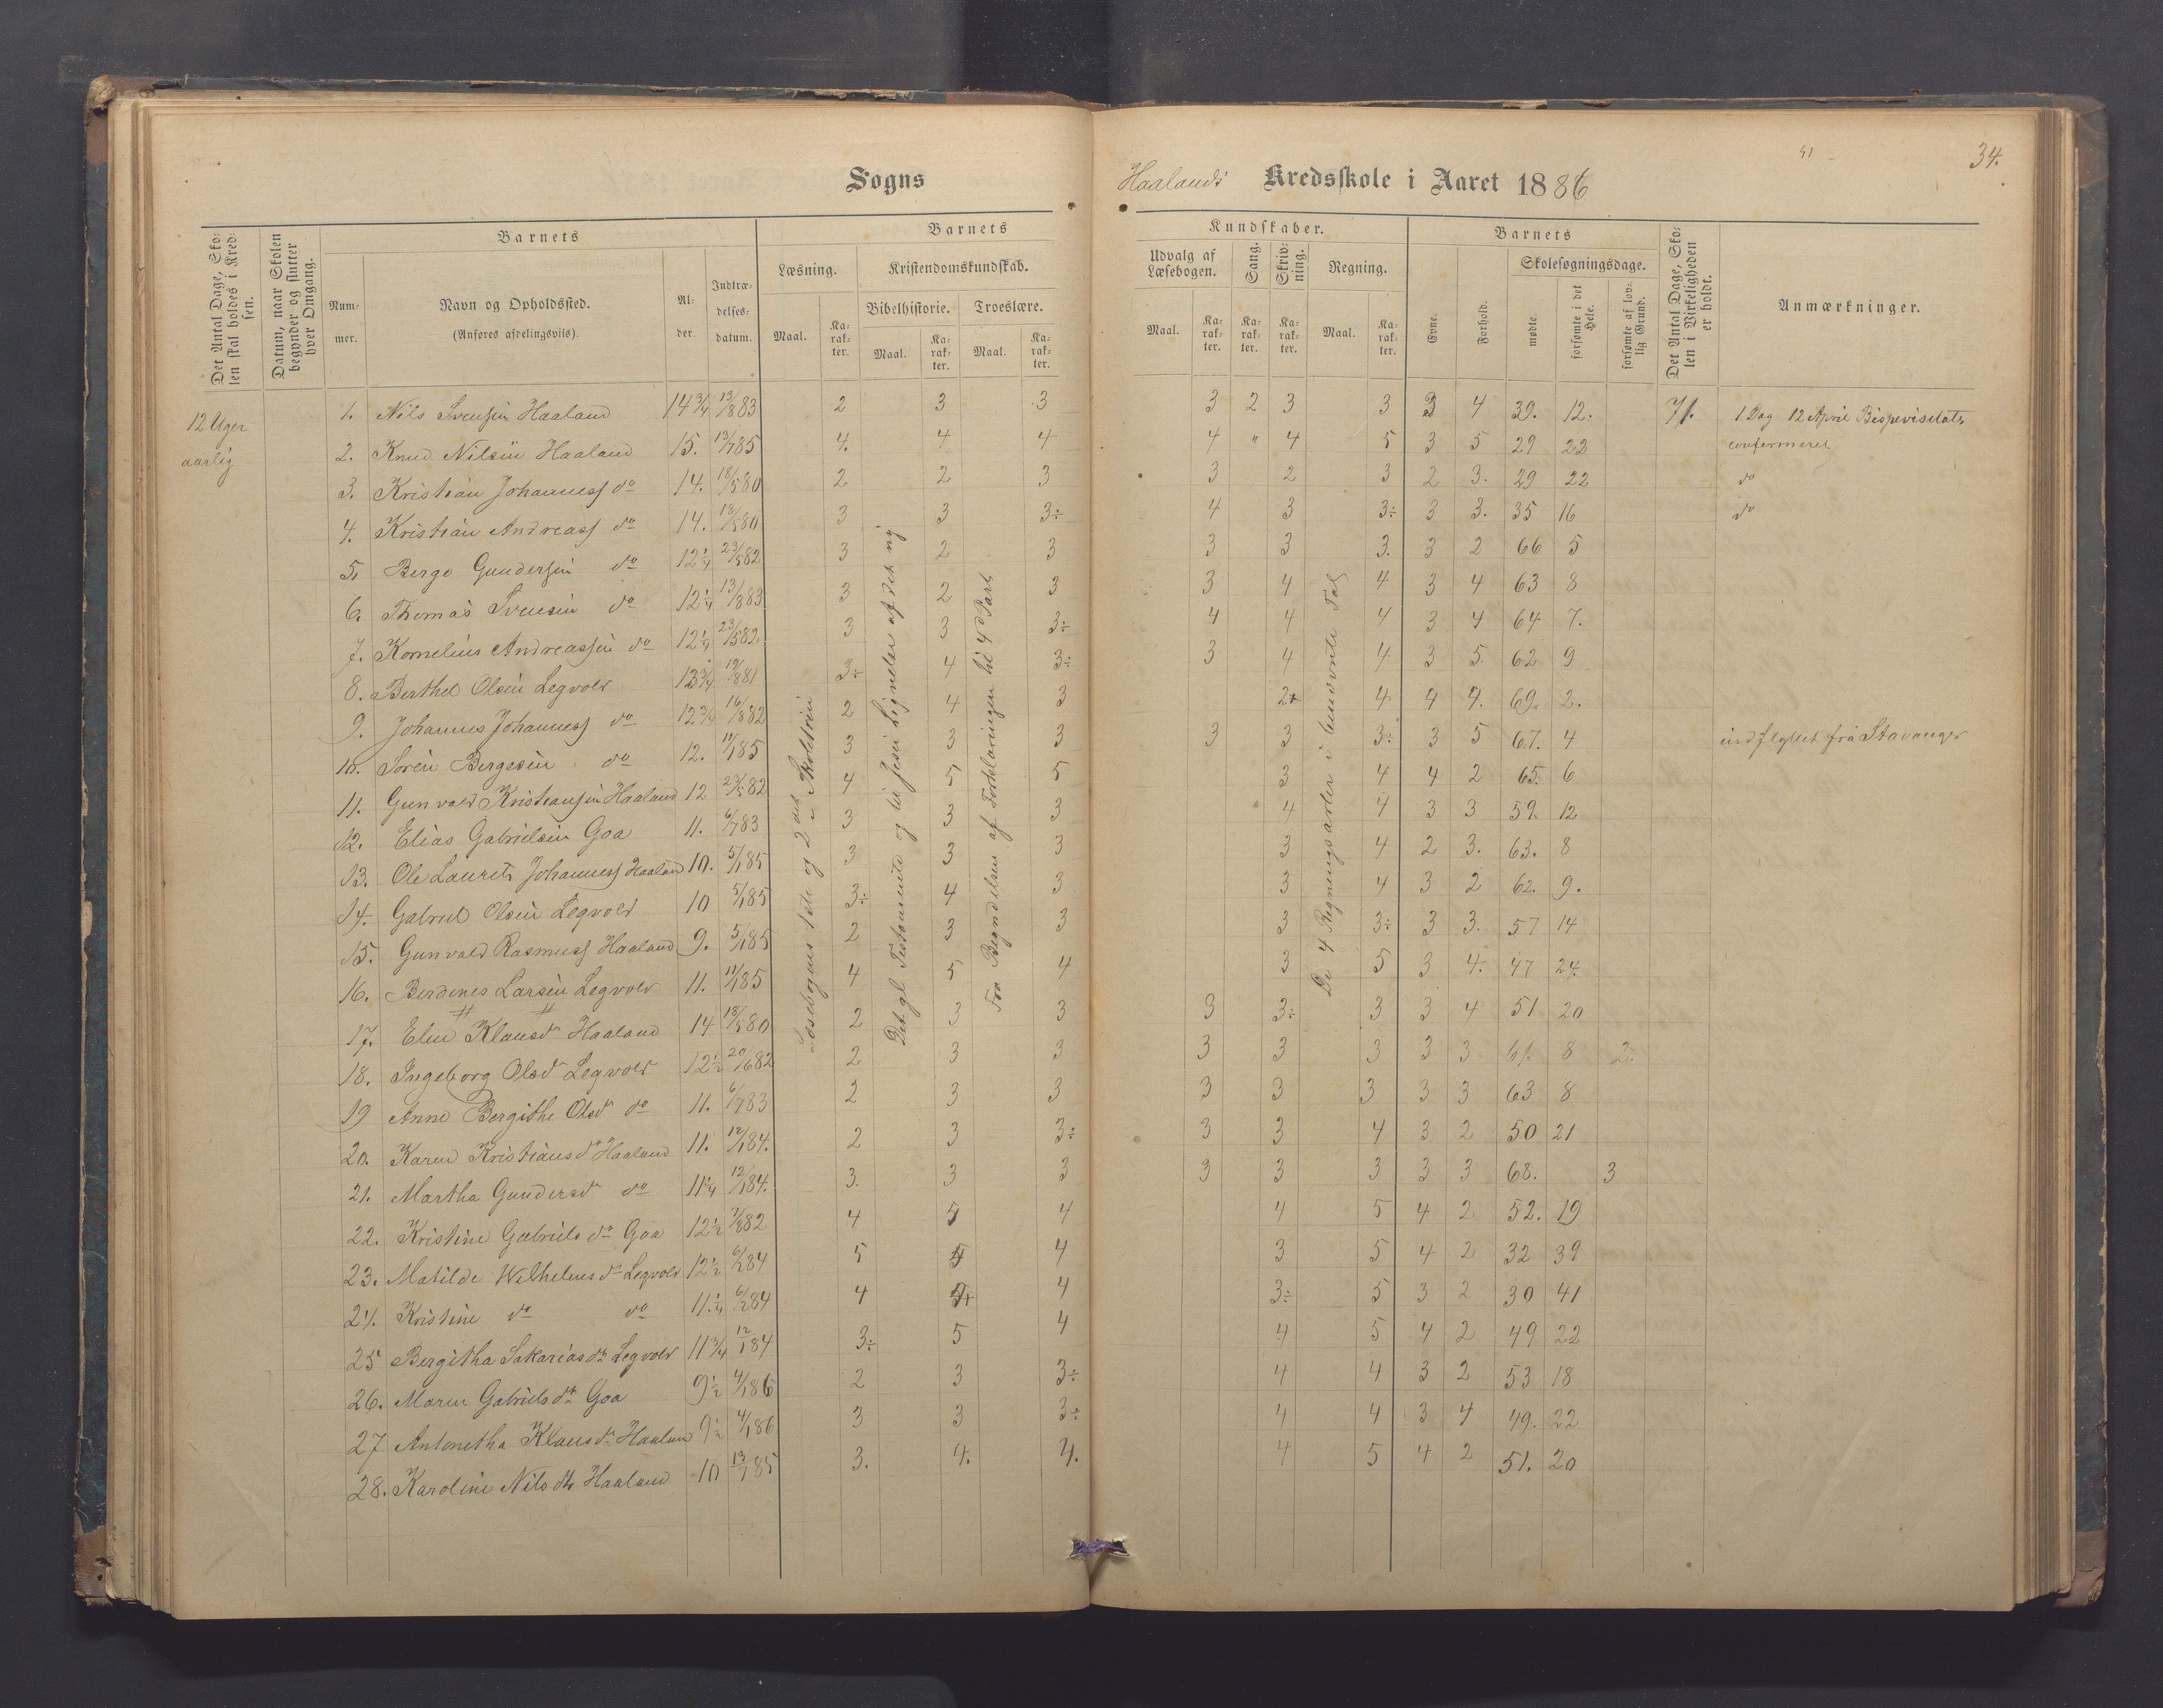 41
34.
Sogns Haalands Kredsskole i Aaret 1886
Det Antal Dage, Skolen skal holdes i Kredsen.
Datum, naar Skolen begynder og slutter hver Omgang.
Barnets
Nummer.
Navn og Opholdssted.
(Anføres afdelingsviis).
Alder.
Indtrædelsesdatum.
Barnets
Læsning.
Maal.
Karakter.
Kristendomskundskab.
Bibelhistorie.
Maal.
Karakter.
Troeslære.
Maal.
Karakter.
Kundskaber.
Udvalg af Læsebogen.
Maal.
Karakter.
Sang.
Karakter.
Skrivning.
Karakter.
Regning.
Maal.
Karakter.
Barnets
Evne.
Forhold.
Skolesøgningsdage.
mødte.
forsømte i det Hele.
forsømte af lovlig Grund.
Det Antal Dage, Skolen i Virkeligheden er holdt.
Anmærkninger.
12 Uger
aarlig
Læsebogens 1ste og 2det Skoletrin
Det gl Testamente og til Jesu Lignelser af det ny
Fra Begyndelsen af Forklaringen til 4d Part
De 4 Regningsarter i benævnte Tal
1. Nils Svensen Haaland 14 3/4 13/8 83 2 3 3 3 2 3 3 3 4 39. 12. 71. 1 Dag 12 April Bispevisitats
2. Knud Nilsen Haaland 15. 13/7 85 4. 4 4 4 " 4 5 3 5 29 22 confermeret
3. Kristian Johanness do 14. 18/5 80 2 2 3 3 2 3 2 3. 29 22 do
4. Kristian Andreass do 14. 18/5 80 3 3 3÷ 4 3 3÷ 3 3. 35 16 do
5. Berge Gundersen do 12 1/4 23/5 82 3 2 3 3 3 3. 3 2 66 5
6. Thomas Svensen do 12 1/4 13/8 83 3 2 3 3 4 4 3 4 63 8
7. Kornelius Andreassen do 12 1/4 23/5 82. 3 3 3÷ 4 4 4 3 4 64 7.
8. Berthel Olsen Legvold 13 3/4 19/8 81 3÷ 4 3÷ 3 4 4 3 5. 62 9
9. Johannes Johanness do 12 3/4 16/8 82 2 4 3 2+ 4 4 4. 69. 2.
10. Sören Bergesen do 12. 12/1 85 3 3 3 3 3 3÷ 3 5 67. 4 indflyttet fra Stavanger
11. Gunvald Kristiansen Haaland 12 23/5 82 4 5 5 3 4 4 2 65. 6
12. Elias Gabrielsen Goa 11. 6/7 83 3 3 3 4 4 3 3 59. 12
13. Ole Laurits Johanness Haaland 10. 5/1 85 3 3 3 3 4 2 3. 63. 8
14. Gabriel Olsen Legvold 10 5/1 85 3÷ 4 3 3 4 3 2 62. 9.
15. Gunvald Rasmuss Haaland 9. 5/1 85 2 3 3 3 3÷ 3 3. 57 14
16. Berdines Larsen Legvold 11. 11/1 85 4 5 4 3 5 3 4. 47 24.
17. Elen Klausd Haaland 14 18/5 80 2 3 3 3 3÷ 3 3 4 51 20
18. Ingeborg Olsd Legvold 12 1/2 20/6 82 2 3 3 3 3 3 3 3 61. 8 2.
19 Anne Bergithe Olsd do 11. 6/7 83 2 3 3 3 3 3 3 3 63 8
20. Karen Kristiansd Haaland 11. 12/1 84. 2 3 3÷ 3 3 4 3 2 50 21
21. Martha Gundersd do 11 1/4 12/1 84. 3. 3 3 3 3 3 3 3 68. 3
22. Kristine Gabriels d Goa 12 1/2 7/8 82 4 5 4 4 5 4 2 52. 19
23. Matilde Wilhelms d Legvold 12 1/2 6/2 84 5 5 4 3 5 4 2 32 39
24. Kristine do do 11. 1/4 6/2 84 4 4 3÷ 5 3 2 30 41
25 Bergitha Sakariasd Legvold 11 3/4 12/1 84 3÷ 5 4 4 5 4 2 49 22
26. Maren Gabrielsd Goa 9 1/2 4/1 86 2 3 3÷ 4 4 3 2 53 18
27 Antonetha Klausd Haaland 9 1/2 4/1 86 3 3 3÷ 4 4 3 4 49. 22
28. Karoline Nilsdtr Haaland 10 13/7 85 3. 4. 4. 4 5 4 2 51. 20